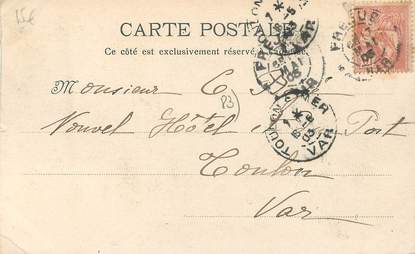 15€
CARTE POSTALE
Ce côté est exclusivement réservé à l'adresse.
FREJUS
VAR
TOULON S MER
VAR
Monsieur C
Nouvel Hôtel Port
Toulon
Var